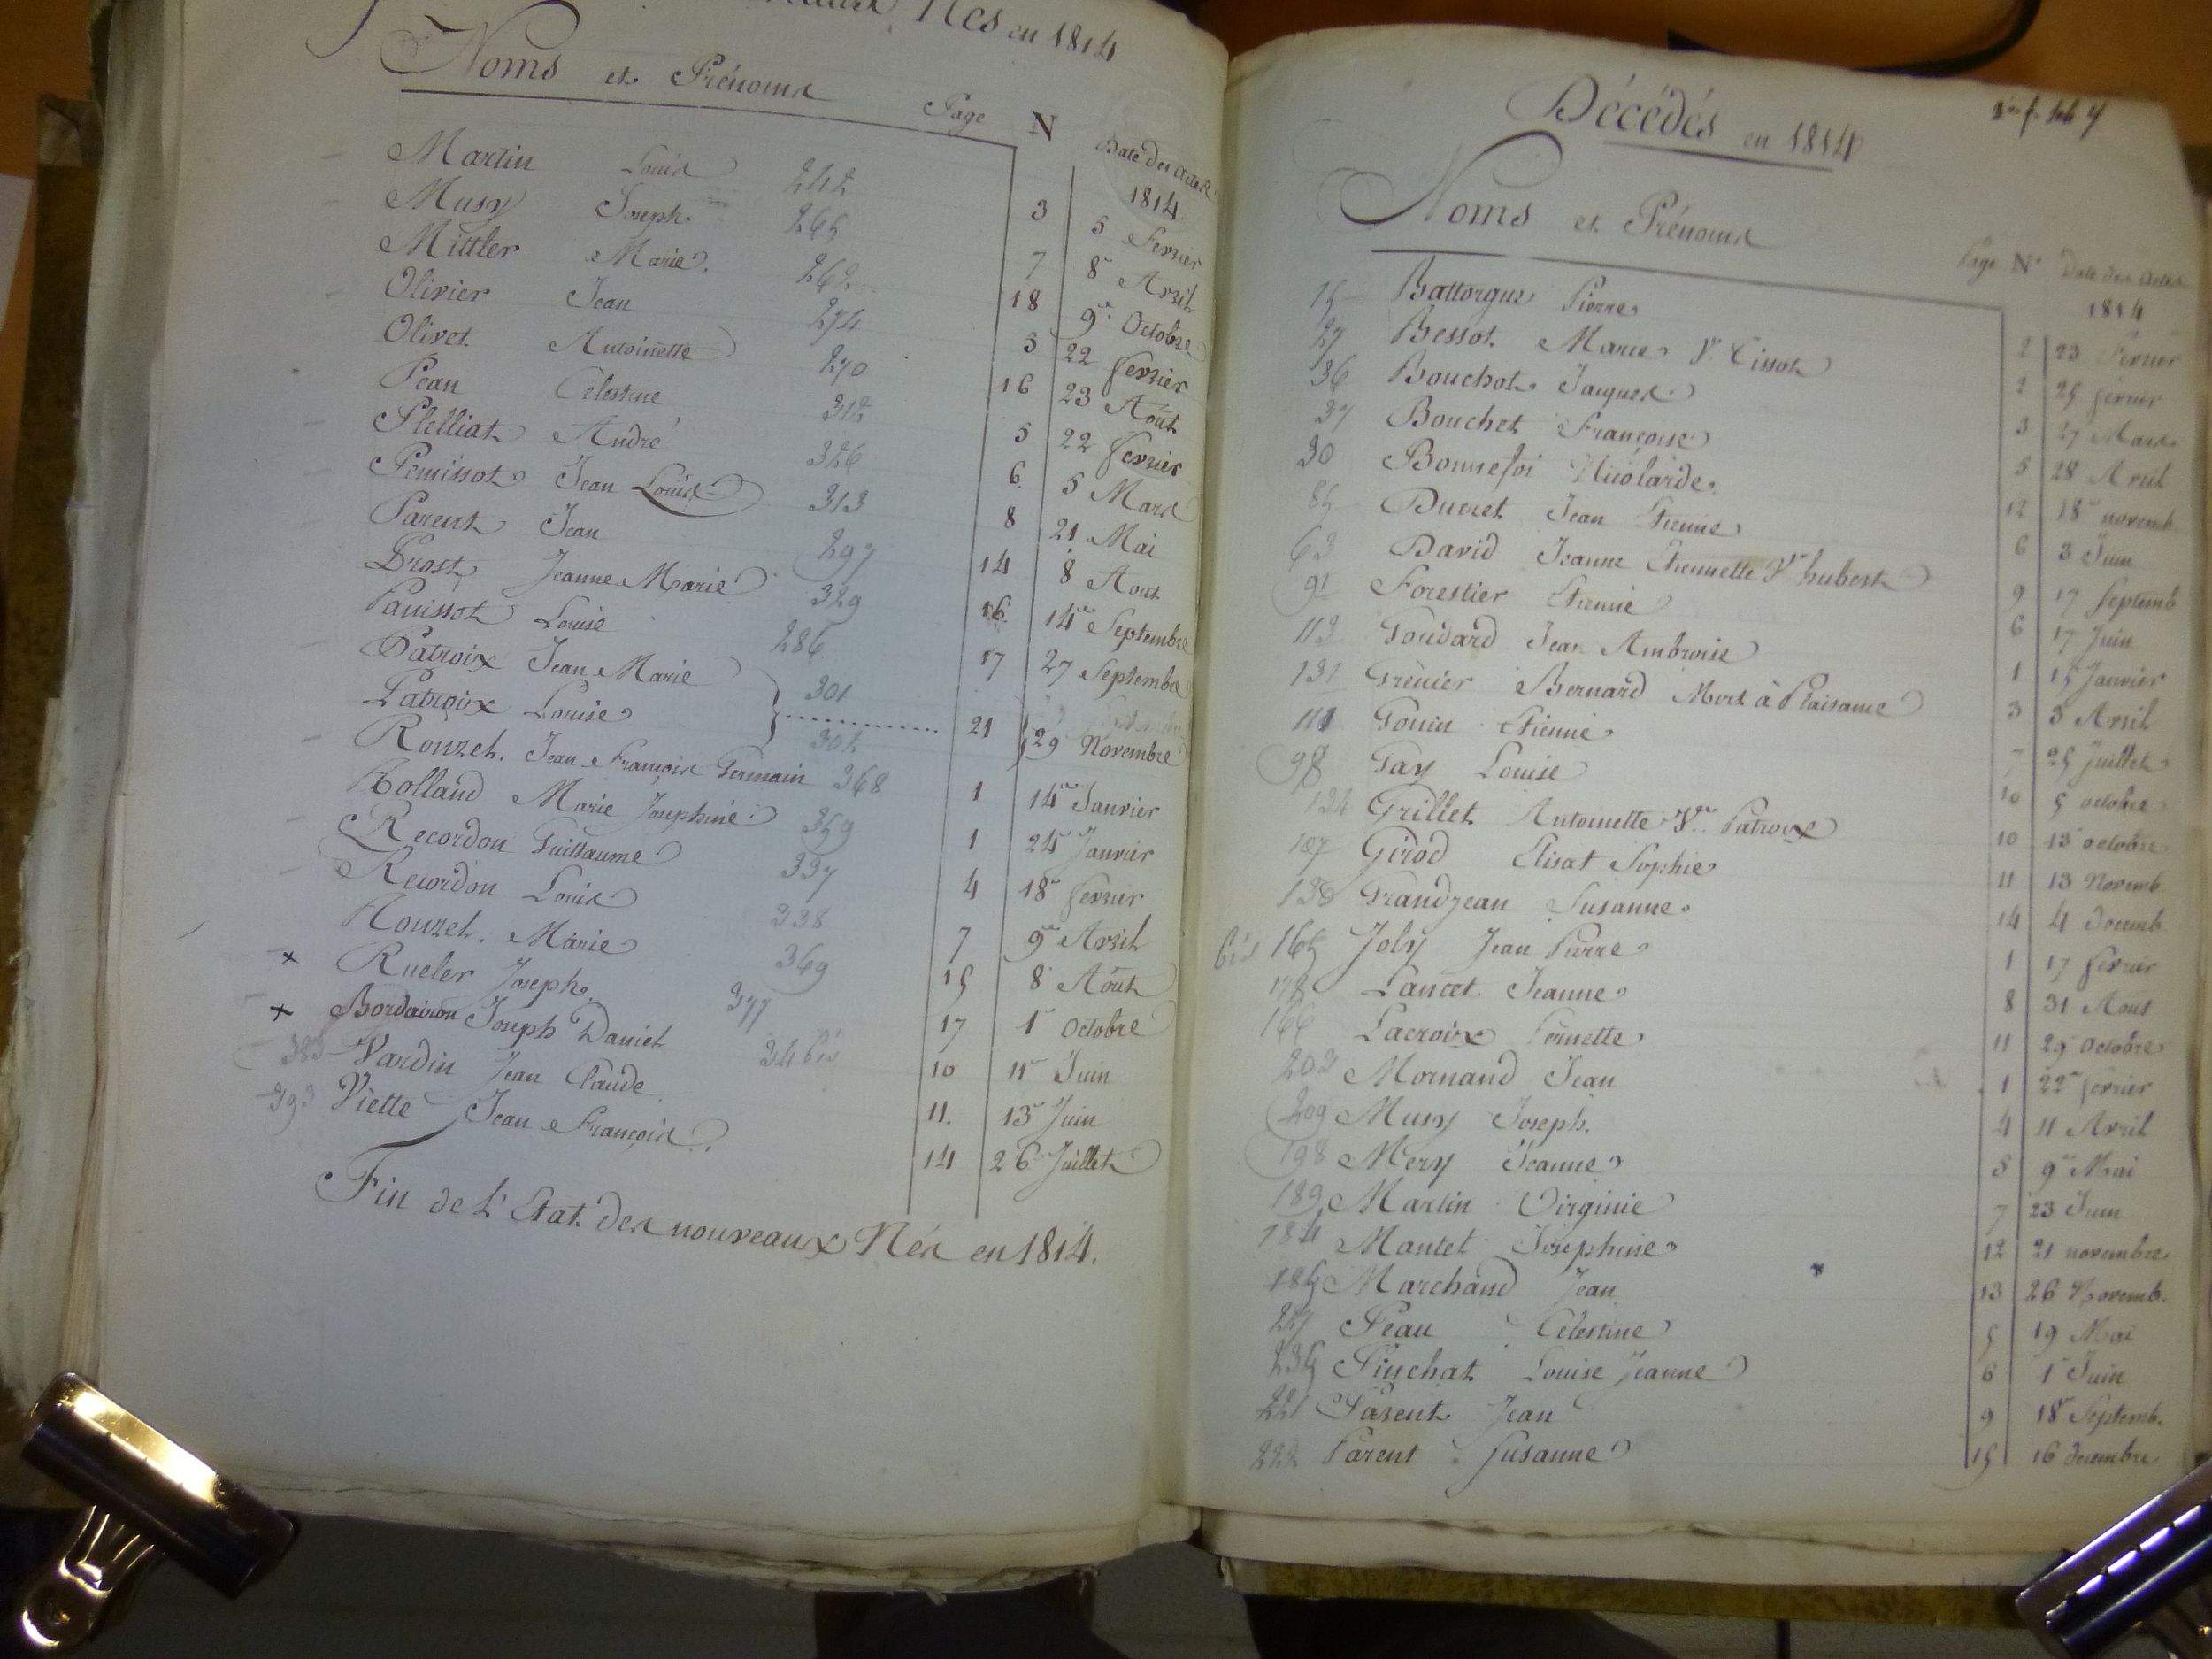 Nés en 1814
Noms et Prénoms Page N Date des Actes
1814
Martin Louis 242 3 5 Fevrier
Musy Joseph 265 7 8 Avril
Mittler Marie 262 18 9 Octobre
Olivier Jean 274 5 22 fevrier
Olivet Antoinette 270 16 23 Août
Pean Célestine 312 5 22 fevrier
Plelliat André 326 6 5 Mars
Pemissot Jean Louis 313 8 21 Mai
Parent Jean 297 14 8 Aout
Prost Jeanne Marie 329 16 14 Septembre
Panissot Louise 286 17 27 Septembre
Patroix Jean Marie 301
Patroix Louise 302 21 29 Novembre
Rouzet Jean François Germain 368 1 14 Janvier
Rolland Marie Josephine 359 1 24 Janvier
Recordon Guillaume 337 4 18 fevrier
Recordon Louis 338 7 9 Avril
Rouzet Marie 369 15 8 Août
x Rueler Joseph 377 17 1 Octobre
x Bordairon Joseph Daniel 34 bis 10 11 Juin
383 Vardin Jean Claude 11 13 Juin
393 Viette Jean François 14 26 Juillet
Fin de l'Etat des nouveaux Nés en 1814.
Décédés en 1814
Noms et Prénoms
Page N° Date des Actes
1814
15 Battorgue Pierre 2 23 Fevrier
27 Bessot Marie Ve Cissot 2 25 fevrier
36 Bouchot Jacques 3 27 Mars
37 Bouchet Françoise 5 28 Avril
30 Bonnefoi Nicolarde 12 18 novemb.
85 Ducret Jean Etienne 6 3 Juin
63 David Jeanne Etiennette Ve hubert 9 17 Septemb
91 Forestier Etienne 6 17 Juin
113 Goudard Jean Ambroise 1 15 Janvier
131 Grenier Bernard Mort à Plaisance 3 3 Avril
111 Gouin Etienne 7 25 Juillet
98 Gay Louise 10 5 octobre
134 Grillet Antoinette Ve Patroix 10 13 octobre
107 Girod Elisat Sophie 11 13 Novemb
138 Grandjean Susanne 14 4 Decemb
bis 165 Joly Jean Pierre 1 17 fevrier
178 Lancet Jeanne 8 31 Aout
166 Lacroix Pernette 11 29 Octobre
203 Mornand Jean 1 22 fevrier
209 Musy Joseph. 4 11 Avril
198 Mery Jeanne 5 9 Mai
189 Martin Virginie 7 23 Juin
184 Mantel Josephine 12 21 novembre
185 Marchand Jean 13 26 Novemb.
227 Peau Celestine 5 19 Mai
235 Pinchat Louise Jeanne 6 1 Juin
221 Parent Jean 9 18 Septemb.
222 Parent Susanne 15 16 decembre